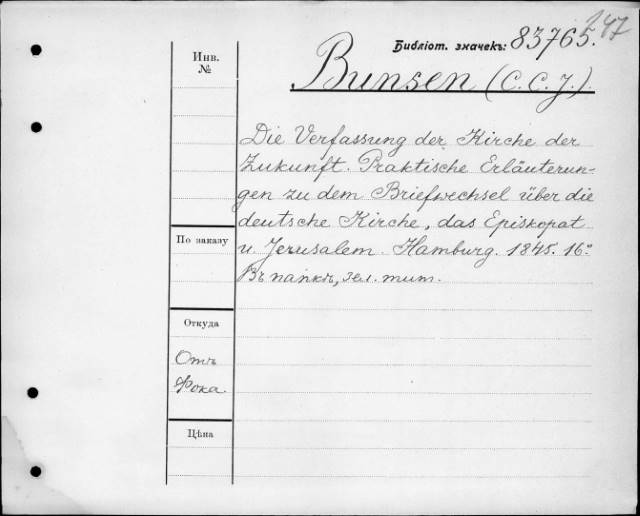 247
Библіот. значекъ: 83765.
Инв.
№
Bunsen (C. C. J.).
Die Verfassung der Kirche der
Zukunft. Praktische Erläuterun-
gen zu dem Briefwechsel über die
deutsche Kirche, das Episkopat
По заказу
u. Jerusalem. Hamburg. 1845. 16°
Въ папкѣ, зел. тит.
Откуда
Отъ
Фока.
Цѣна